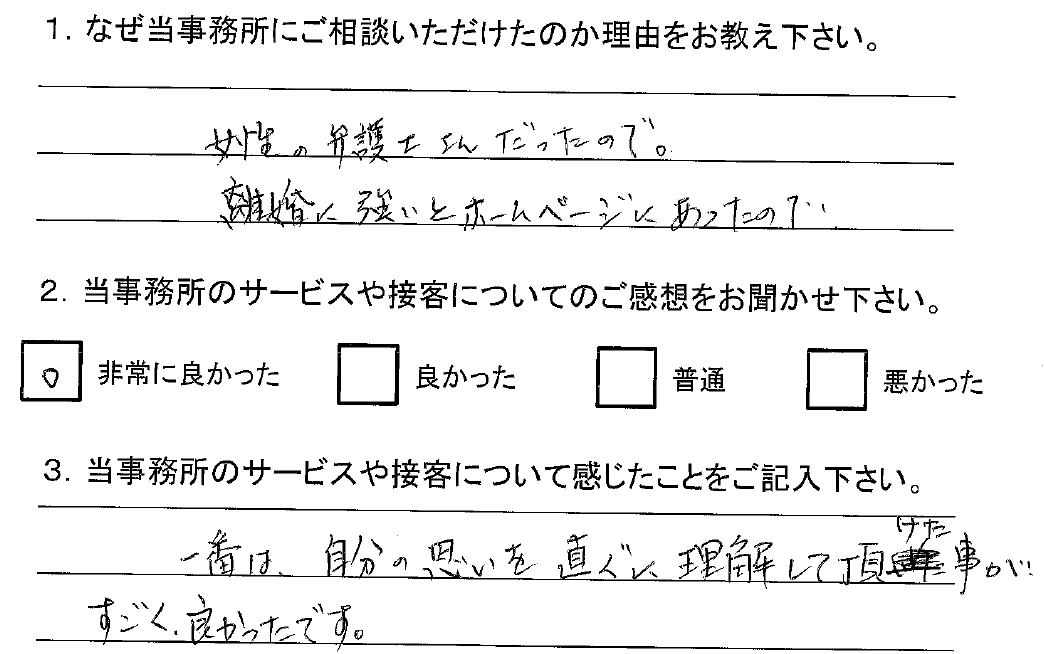 1. なぜ当事務所にご相談いただけたのか理由をお教え下さい。
女性の弁護士さんだったので。
離婚に強いとホームページにあったので
2. 当事務所のサービスや接客についてのご感想をお聞かせ下さい。
非常に良かった 良かった 普通 悪かった
3. 当事務所のサービスや接客について感じたことをご記入下さい。
一番は、自分の思いを直ぐに理解して頂けた事が
すごく、良かったです。